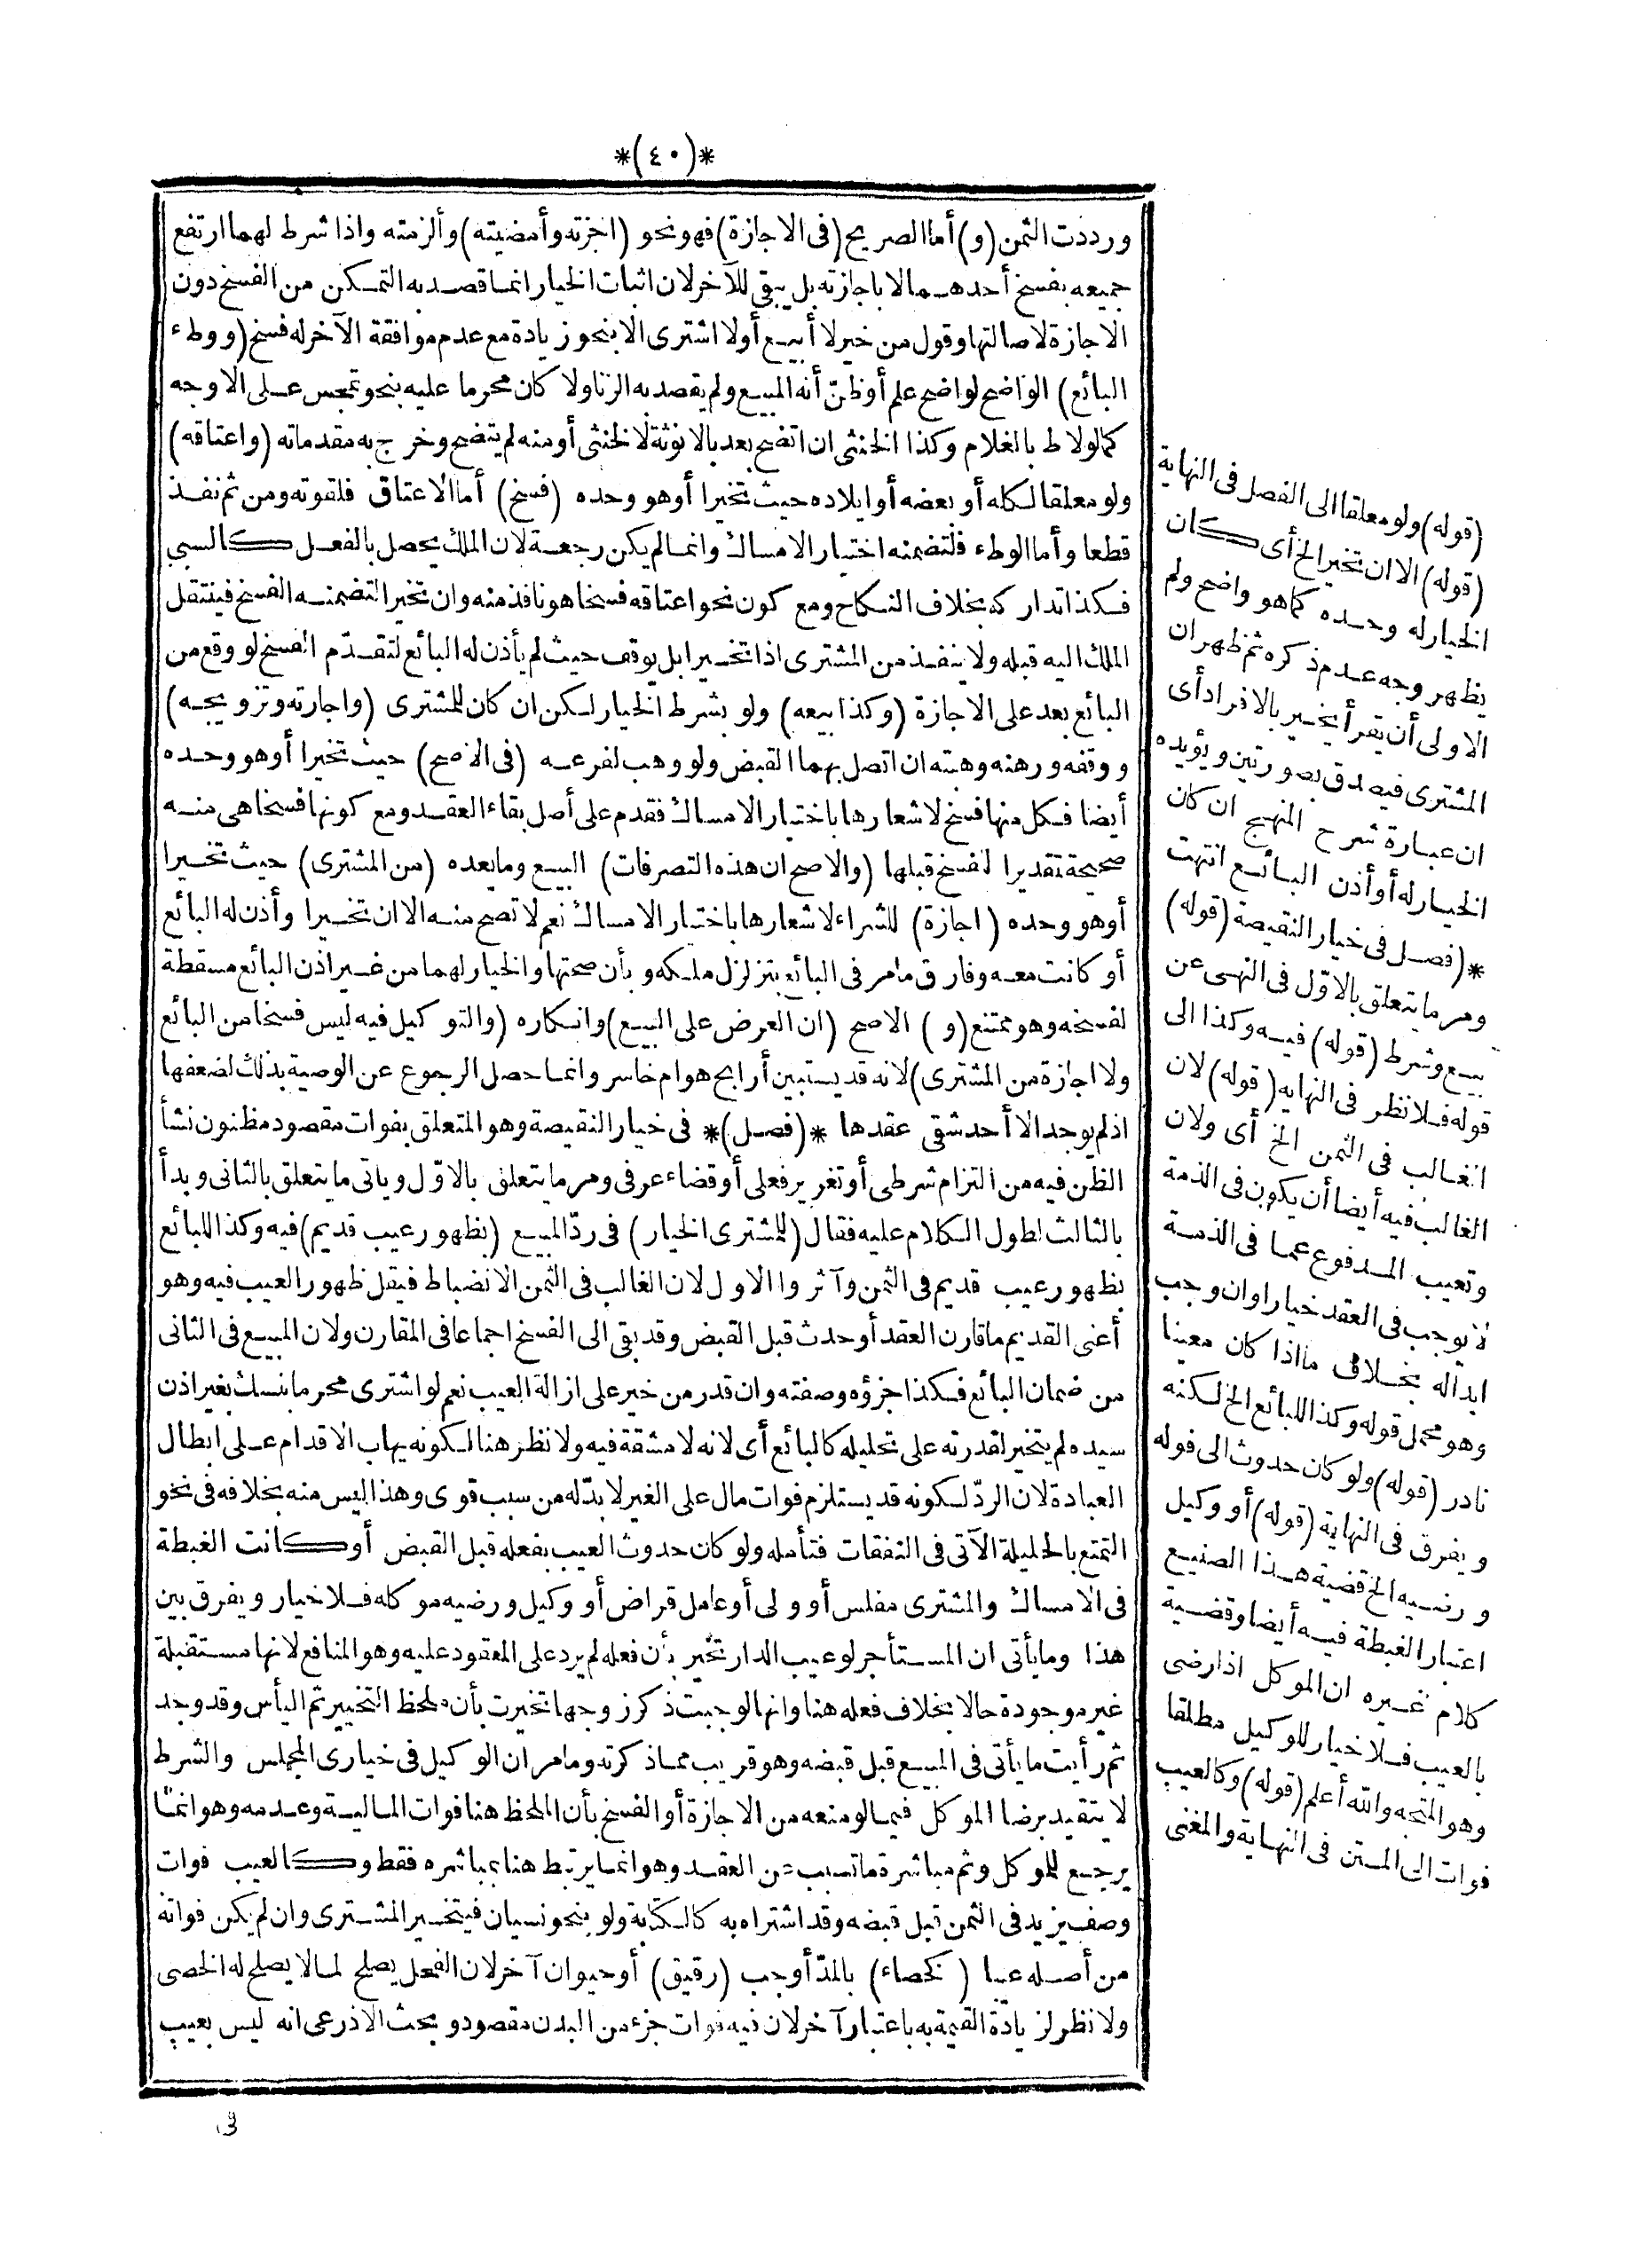 *(٤٠)*
ورددت الثمن (و) أما الصريح (فى الاجازة) فهو نحو (اجزته وأمضيته) وألزمته واذا شرط لهما ارتفع
جميعه بفسخ أحدهما لا باجازته بل يبقى للآخر لان اثبات الخيار انما قصد به التمكن من الفسخ دون
الاجازة لاصالتها وقول من خير لا أبيع أولا اشترى الا بنحو زيادة مع عدم موافقة الآخر له فسخ (ووطء
البائع) الواضح لواضح علم أو ظنّ أنه المبيع ولم يقصد به الزنا ولا كان محرما عليه بنحو تمجس على الاوجه
كما لو لاط بالغلام وكذا الخنثى ان اتضح بعد بالانوثة لا لخنثى أو منه لم يتضح وخرج به مقدماته (واعتاقه)
ولو معلقا لكله أو بعضه أو ايلاده حيث تخيرا أو هو وحده (فسخ) أما الاعتاق فلقوته ومن ثم نفذ
قطعا وأما الوطء فلتضمنه اختيار الامساك وانما لم يكن رجعة لان الملك يحصل بالفعل كالسبى
فكذا تداركه بخلاف النكاح ومع كون نحو اعتاقه فسخا هو نافذ منه وان تخيرا لتضمنه الفسخ فينتقل
الملك اليه قبله ولا ينفذ من المشترى اذا تخيرا بل يوقف حيث لم يأذن له البائع لتقدّم الفسخ لو وقع من
البائع بعد على الاجازة (وكذا بيعه) ولو بشرط الخيار لكن ان كان للمشترى (واجارته وتزويجه)
ووقفه ورهنه وهبته ان اتصل بهما القبض ولو وهب لفرعه (فى الاصح) حيث تخيرا أو هو وحده
أيضا فكل منها فسخ لاشعارها باختيار الامساك فقدم على أصل بقاء العقد ومع كونها فسخا هى منه
صحيحة تقديرا للفسخ قبلها (والاصح ان هذه التصرفات) البيع وما بعده (من المشترى) حيث تخيرا
أو هو وحده (اجازة) للشراء لاشعارها باختيار الامساك نعم لا تصح منه الا ان تخيرا وأذن له البائع
أو كانت معه وفارق ما مر فى البائع بتزلزل ملكه وبأن صحتها والخيار لهما من غير اذن البائع مسقطة
لفسخه وهو ممتنع (و) الاصح (ان العرض على البيع) وانكاره (والتوكيل فيه ليس فسخا من البائع
ولا اجازة من المشترى) لانه قد يستبين أرابح هو ام خاسر وانما حصل الرجوع عن الوصية بذلك لضعفها
اذ لم يوجد الا أحد شقى عقدها *(فصل)* فى خيار النقيصة وهو المتعلق بفوات مقصود مظنون نشأ
الظن فيه من التزام شرطى أو تغرير فعلى أو قضاء عرفى ومر ما يتعلق بالاوّل ويأتى ما يتعلق بالثانى وبدأ
بالثالث لطول الكلام عليه فقال (للمشترى الخيار) فى ردّ المبيع (بظهور عيب قديم) فيه وكذا للبائع
بظهور عيب قديم فى الثمن وآثروا الاول لان الغالب فى الثمن الانضباط فيقل ظهور العيب فيه وهو
أعنى القديم ما قارن العقد أو حدث قبل القبض وقد بقى الى الفسخ اجماعا فى المقارن ولان المبيع فى الثانى
من ضمان البائع فكذا جزؤه وصفته وان قدر من خير على ازالة العيب نعم لو اشترى محرما بنسك بغير اذن
سيده لم يتخير لقدرته على تحليله كالبائع أى لانه لا مشقة فيه ولا نظر هنا لكونه يهاب الاقدام على ابطال
العبادة لان الردّ لكونه قد يستلزم فوات مال على الغير لا بدّ له من سبب قوى وهذا ليس منه بخلافه فى نحو
التمتع بالحليلة الآتى فى النفقات فتأمله ولو كان حدوث العيب بفعله قبل القبض أو كانت الغبطة
فى الامساك والمشترى مفلس أو ولى أو عامل قراض أو وكيل ورضيه موكله فلا خيار ويفرق بين
هذا وما يأتى ان المستأجر لو عيب الدار تخير بأن فعله لم يرد على المعقود عليه وهو المنافع لانها مستقبلة
غير موجودة حالا بخلاف فعله هنا وانها لو جبت ذكر زوجها تخيرت بأن ملحظ التخيير ثم اليأس وقد وجد
ثم رأيت ما يأتى فى المبيع قبل قبضه وهو قريب مما ذكرته وما مر ان الوكيل فى خيارى المجلس والشرط
لا يتقيد برضا الموكل فيما لو منعه من الاجازة أو الفسخ بأن الملحظ هنا فوات المالية وعدمه وهو انما
يرجع للموكل وثم مباشرة ما تسبب عن العقد وهو انما يرتبط هنا بمباشره فقط وكالعيب فوات
وصف يزيد فى الثمن قبل قبضه وقد اشتراه به كالكتابة ولو بنحو نسيان فيتخير المشترى وان لم يكن فواته
من أصله عيبا (كخصاء) بالمدّ أو جب (رقيق) أو حيوان آخر لان الفحل يصلح لما لا يصلح له الخصى
ولا نظر لزيادة القيمة به باعتبار آخر لان فيه فوات جزء من البدن مقصود وبحث الاذرعى انه ليس بعيب
فى
(قوله) ولو معلقا الى الفصل فى النهاية
(قوله) الا ان تخيرا الخ أى كان
الخيار له وحده كما هو واضح ولم
يظهر وجه عدم ذكره ثم ظهر ان
الاولى أن يقرأ يخير بالافراد أى
المشترى فيصدق بصورتين ويؤيده
ان عبارة شرح المنهج ان كان
الخيار له أو أذن البائع انتهت
*(فصل فى خيار النقيصة (قوله)
ومر ما يتعلق بالاوّل فى النهى عن
بيع وشرط (قوله) فيه وكذا الى
قوله فلا نظر فى النهايه (قوله) لان
الغالب فى الثمن الخ أى ولان
الغالب فيه أيضا أن يكون فى الذمة
وتعيب المدفوع عما فى الذمة
لا يوجب فى العقد خيارا وان وجب
ابداله بخلاف ما اذا كان معينا
وهو محمل قوله وكذا للبائع الخ لكنه
نادر (قوله) ولو كان حدوث الى قوله
ويفرق فى النهاية (قوله) أو وكيل
ورضيه الخ قضية هذا الصنيع
اعتبار الغبطة فيه أيضا وقضية
كلام غيره ان الموكل اذا رضى
بالعيب فلا خيار للوكيل مطلقا
وهو المتجه والله أعلم (قوله) وكالعيب
فوات الى المتن فى النهاية والمغنى